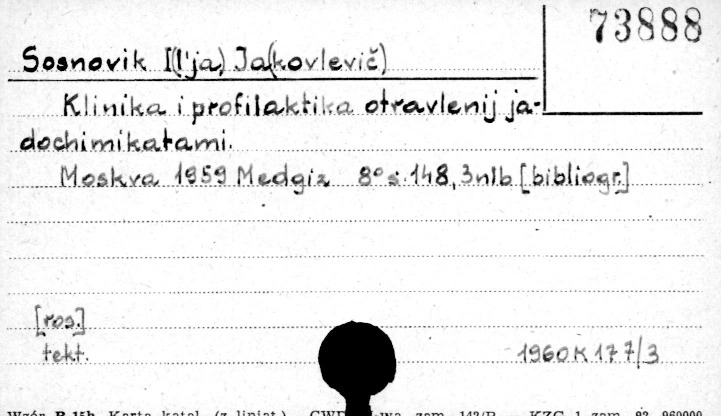 73888
Sosnovik I(l'ja) Ja(kovlevič)
Klinika i profilaktika otravlenij ja-
dochimikatami.
Moskva 1959 Medgiz 8° s. 148, 3nlb [bibliogr.]
[ros.]
tekt.
1960 K 177/3
Wzór B-15b Karta katal. (z liniat.)